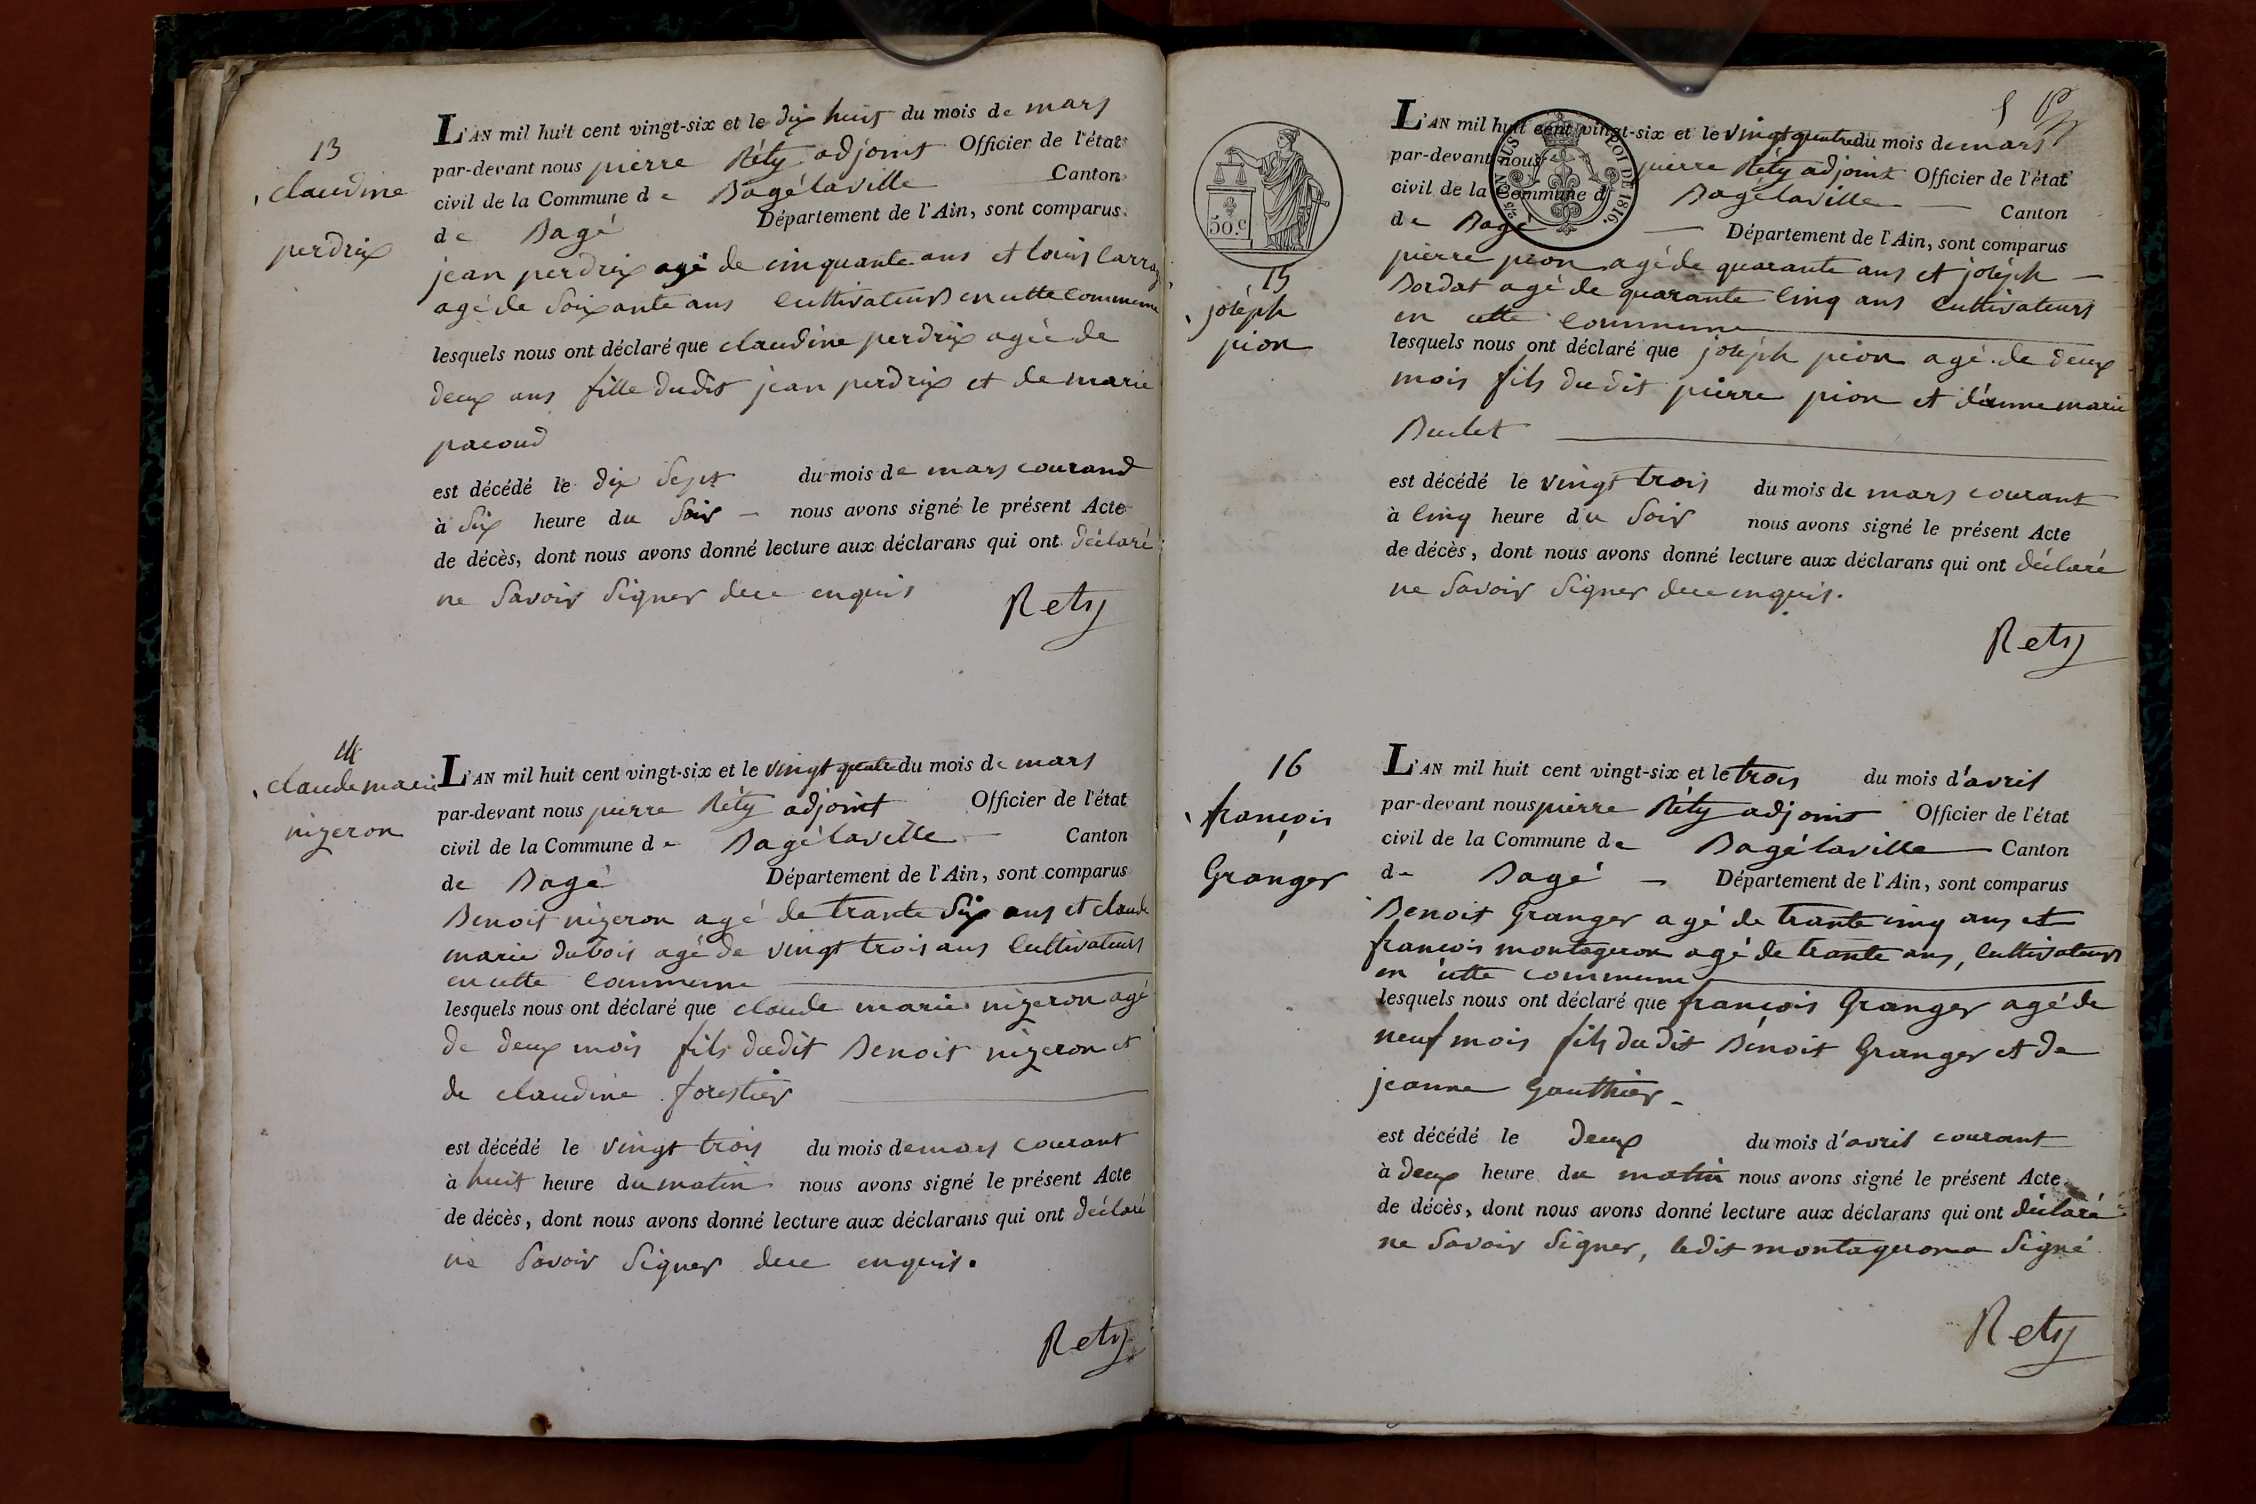 13
claudine
perdrix
L'AN mil huit cent vingt-six et le dix huit du mois de mars
par-devant nous pierre Réty adjoint Officier de l'état
civil de la Commune de Bagélaville Canton
de Bagé Département de l'Ain, sont comparus
jean perdrix agé de cinquante ans et louis Carraz
agé de soixante ans Cultivateurs en cette Commune
lesquels nous ont déclaré que claudine perdrix agée de
deux ans fille dudit jean perdrix et de marie
pacoud
est décédé le dix sept du mois de mars courand
à six heure du soir - nous avons signé le présent Acte
de décès, dont nous avons donné lecture aux déclarans qui ont déclaré
ne savoir signer dece enquis
Rety
14
claudemarie
nizeron
L'AN mil huit cent vingt-six et le vingt quatre du mois de mars
par-devant nous pierre Réty adjoint Officier de l'état
civil de la Commune de Bagélaville Canton
de Bagé Département de l'Ain, sont comparus
Benoit nizeron agé de trante six ans et claude
marie dubois agé de vingt trois ans Cultivateurs
en cette Commune
lesquels nous ont déclaré que claude marie nizeron agé
de deux mois fils dudit Benoit nizeron et
de claudine forestier
est décédé le vingt trois du mois de mars courant
à huit heure du matin nous avons signé le présent Acte
de décès, dont nous avons donné lecture aux déclarans qui ont déclaré
ne savoir signer dece enquis.
Rety
5
50.c
LOI DE 1816.
15
joséph
pion
L'AN mil huit cent vingt-six et le vingt quatre du mois de mars
par-devant nous pierre Réty adjoint Officier de l'état
civil de la Commune d Bagélaville Canton
de Bagé Département de l'Ain, sont comparus
pierre pion agé de quarante ans et joséph
Bordat agé de quarante Cinq ans Cultivateurs
en cette Commune
lesquels nous ont déclaré que joséph pion agé de deux
mois fils dudit pierre pion et d'anne marie
Buclet
est décédé le vingt trois du mois de mars courant
à Cinq heure du soir nous avons signé le présent Acte
de décès, dont nous avons donné lecture aux déclarans qui ont déclaré
ne savoir signer dece enquis.
Rety
16
francois
Granger
L'AN mil huit cent vingt-six et le trois du mois d'avril
par-devant nous pierre Réty adjoint Officier de l'état
civil de la Commune de Bagélaville Canton
de Bagé Département de l'Ain, sont comparus
Benoit Granger agé de trante cinq ans et
francois montagueron agé de trante ans, Cultivateurs
en cette commune
lesquels nous ont déclaré que francois Granger agé de
neuf mois fils dudit Bénoit Granger et de
jeanne Gauthier
est décédé le deux du mois d'avril courant
à deux heure du matin nous avons signé le présent Acte
de décès, dont nous avons donné lecture aux déclarans qui ont déclaré
ne savoir signer, ledit montagueron a signé
Rety